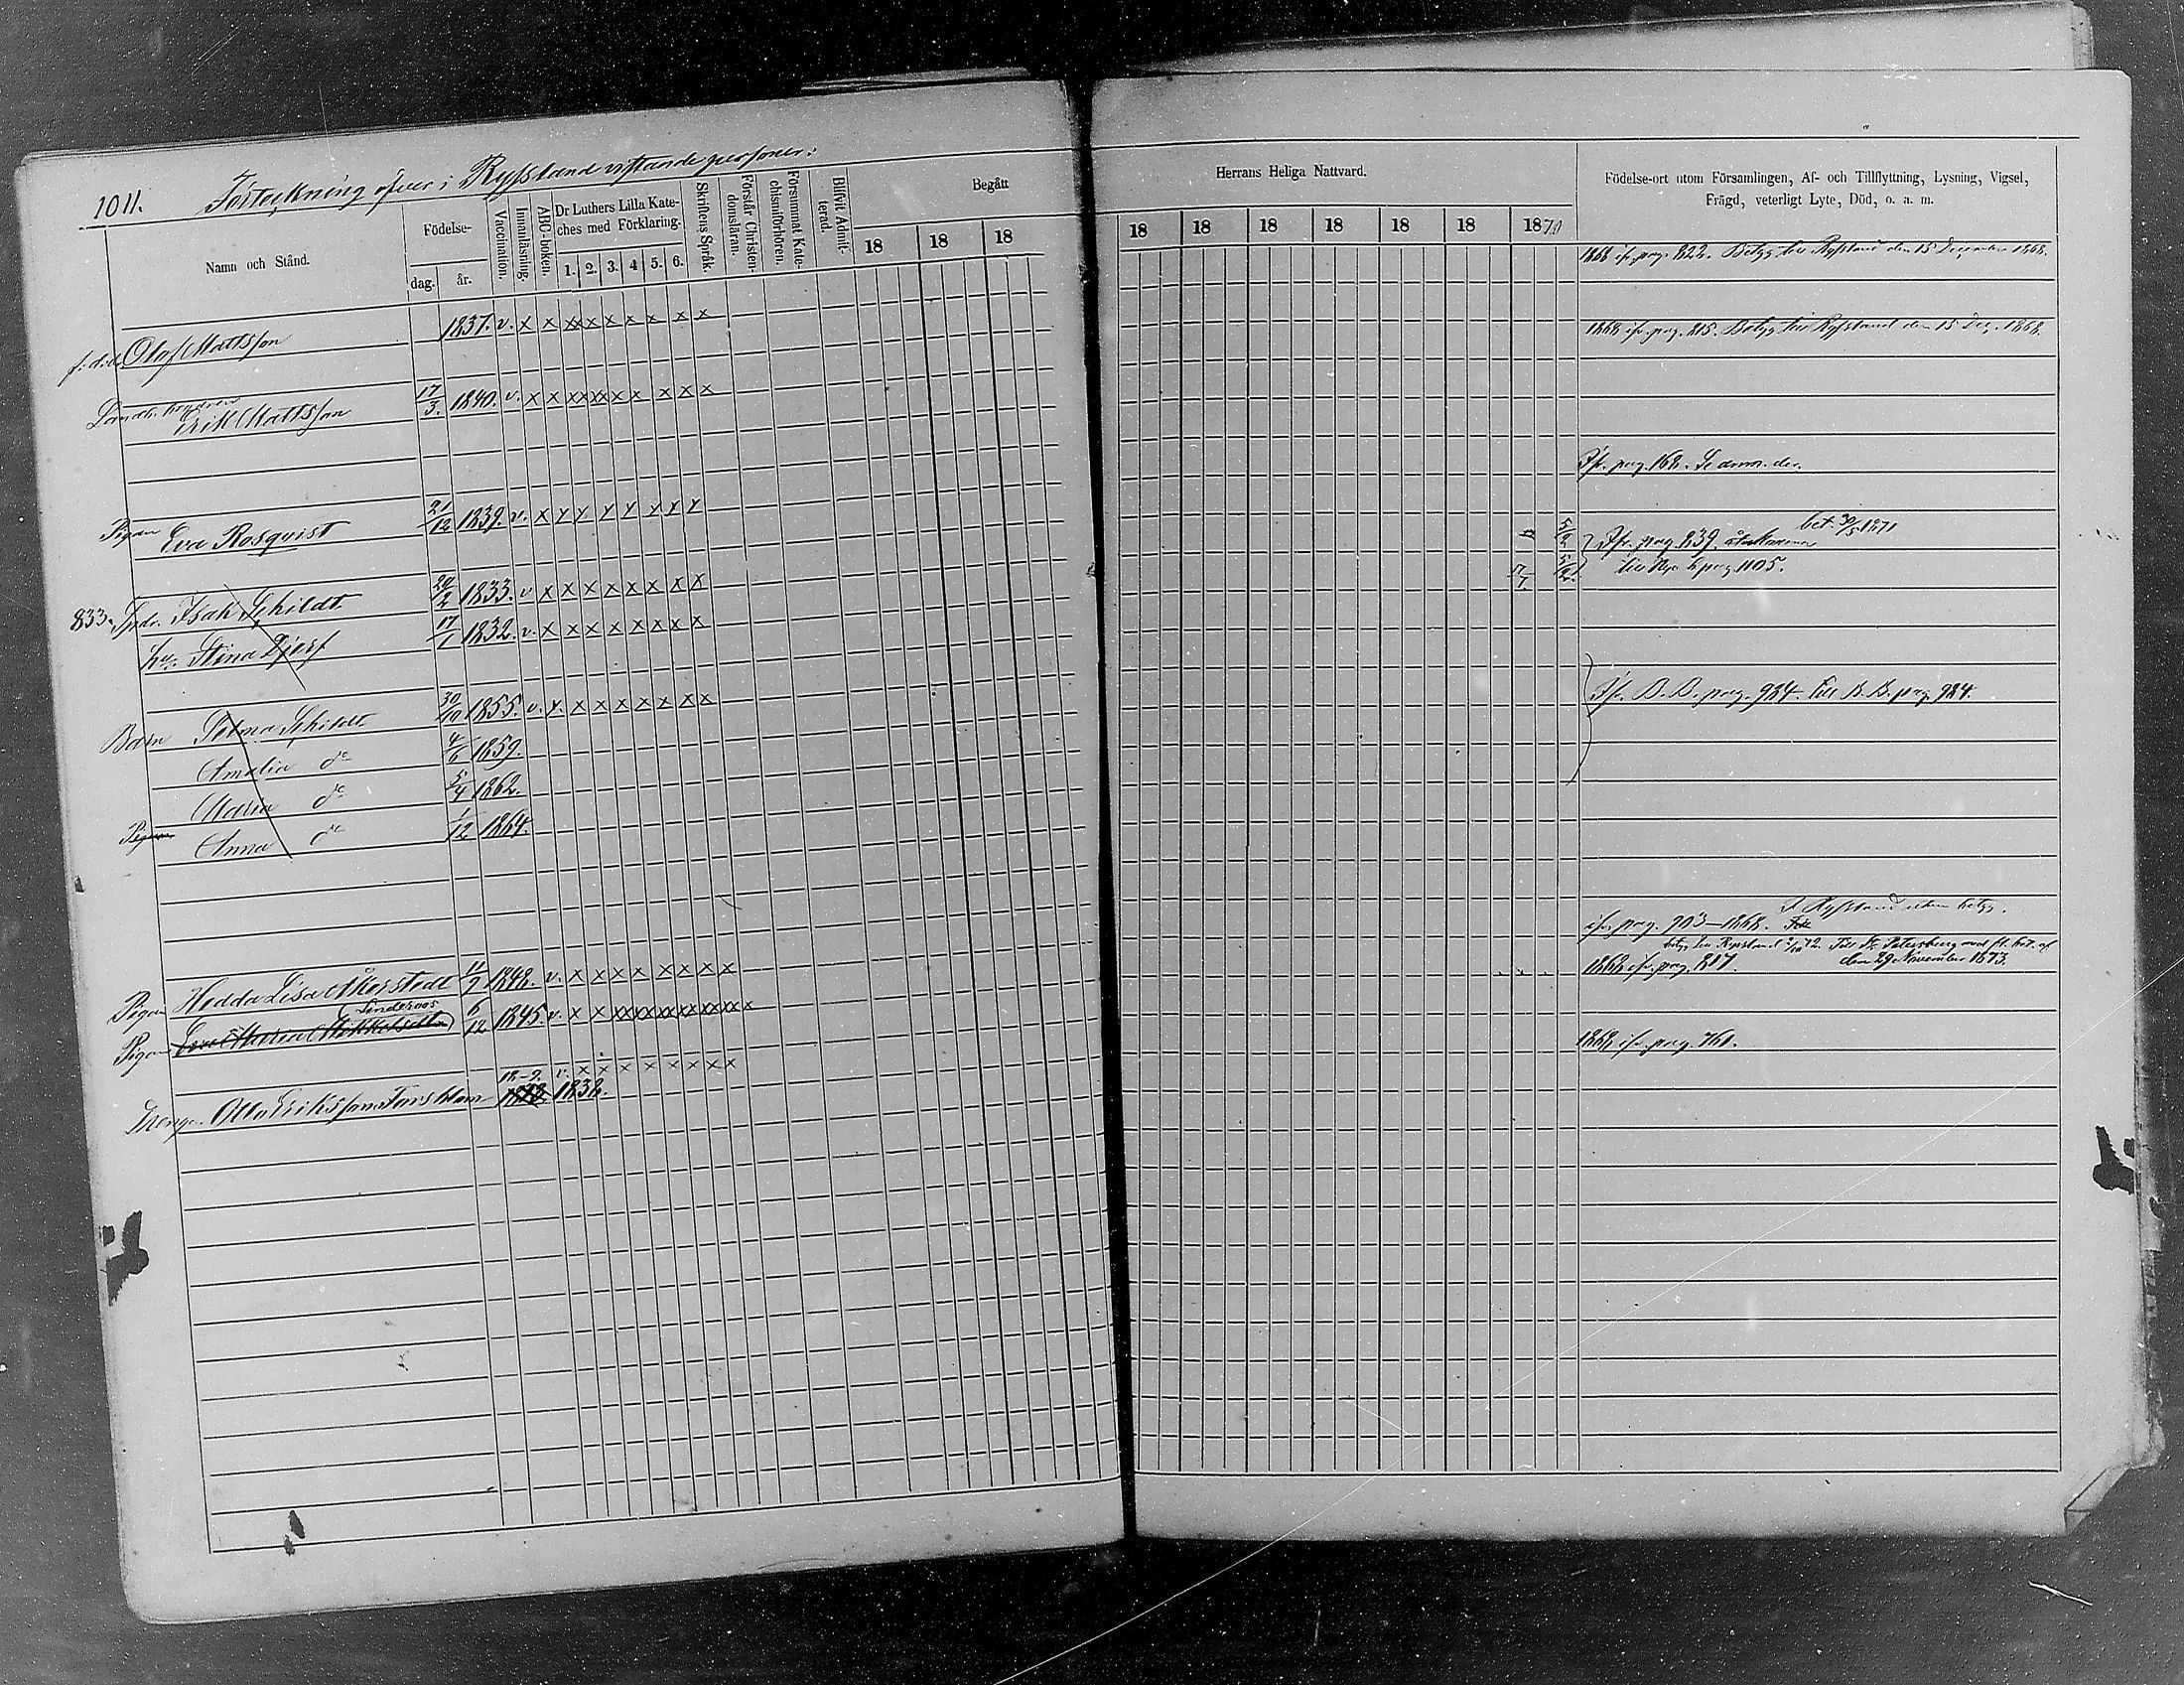 1011.
Förteckning öfver i Ryssland vistande personer:
Namn och Stånd.
Födelse-
dag.
år.
Vaccination.
Innanläsning.
ABC-boken.
Dr Luthers Lilla Kate-
ches med Förklaring.
1. 2. 3. 4 5. 6.
Skriftens Språk.
Förstår Christen-
domsläran.
Försummat Kate-
chismiförhören.
Blifvit Admit-
terad.
Begått
18 18 18
Olof Mattsson 1837. v. x x xx x x x x x x
Erik Mattsson 17/3. 1840. v. x x xx xx x x x x x
Pigan Eva Rosqvist 21/12 1839. v. x x x x x x x x
833. Isak Schildt 20/2 1833. v x x x x x x x x
hu. Stina Djerf 17/1 1832. v. x x x x x x x x
Barn Schildt 30/10 1855. v. x. x x x x x x x
Amalia do 4/6 1859.
Maria do 5/4 1862.
Pigan Anna do 1/12 1864.
Pigan Hedda Lisa Åkerstedt 11/9 1848. v. x x x x x x x x
Lindroos
Pigan Eva Maria 6/12 1845. v. x x xx xx xx xx xx x x
12-9. v. x x x x x x x x
Drengen Otto Eriksson 1832.
Herrans Heliga Nattvard.
18 18 18 18 18 18 1870
Födelse-ort utom Församlingen, Af- och Tillflyttning, Lysning, Vigsel,
Frägd, veterligt Lyte, Död, o. a. m.
1868 ifr. pag. 822. Betyg till Ryssland den 15 December 1868.
1868 ifr. pag. 815. Betyg till Ryssland den 15 Dec. 1868.
Ifr. pag. 168.
bet. 30/5 1871
Ifr. pag. 839. återkomna
till pag 1105.
Ifr. B. B. pag. 924. Till B. B. pag. 924.
I Ryssland utan betyg.
ifr. pag. 703-1868.
betyg till Ryssland 72. Till St. Petersburg med fl. bet. af
1868 ifr. pag. 817. den 29 November 1873.
1868 ifr. pag. 761.